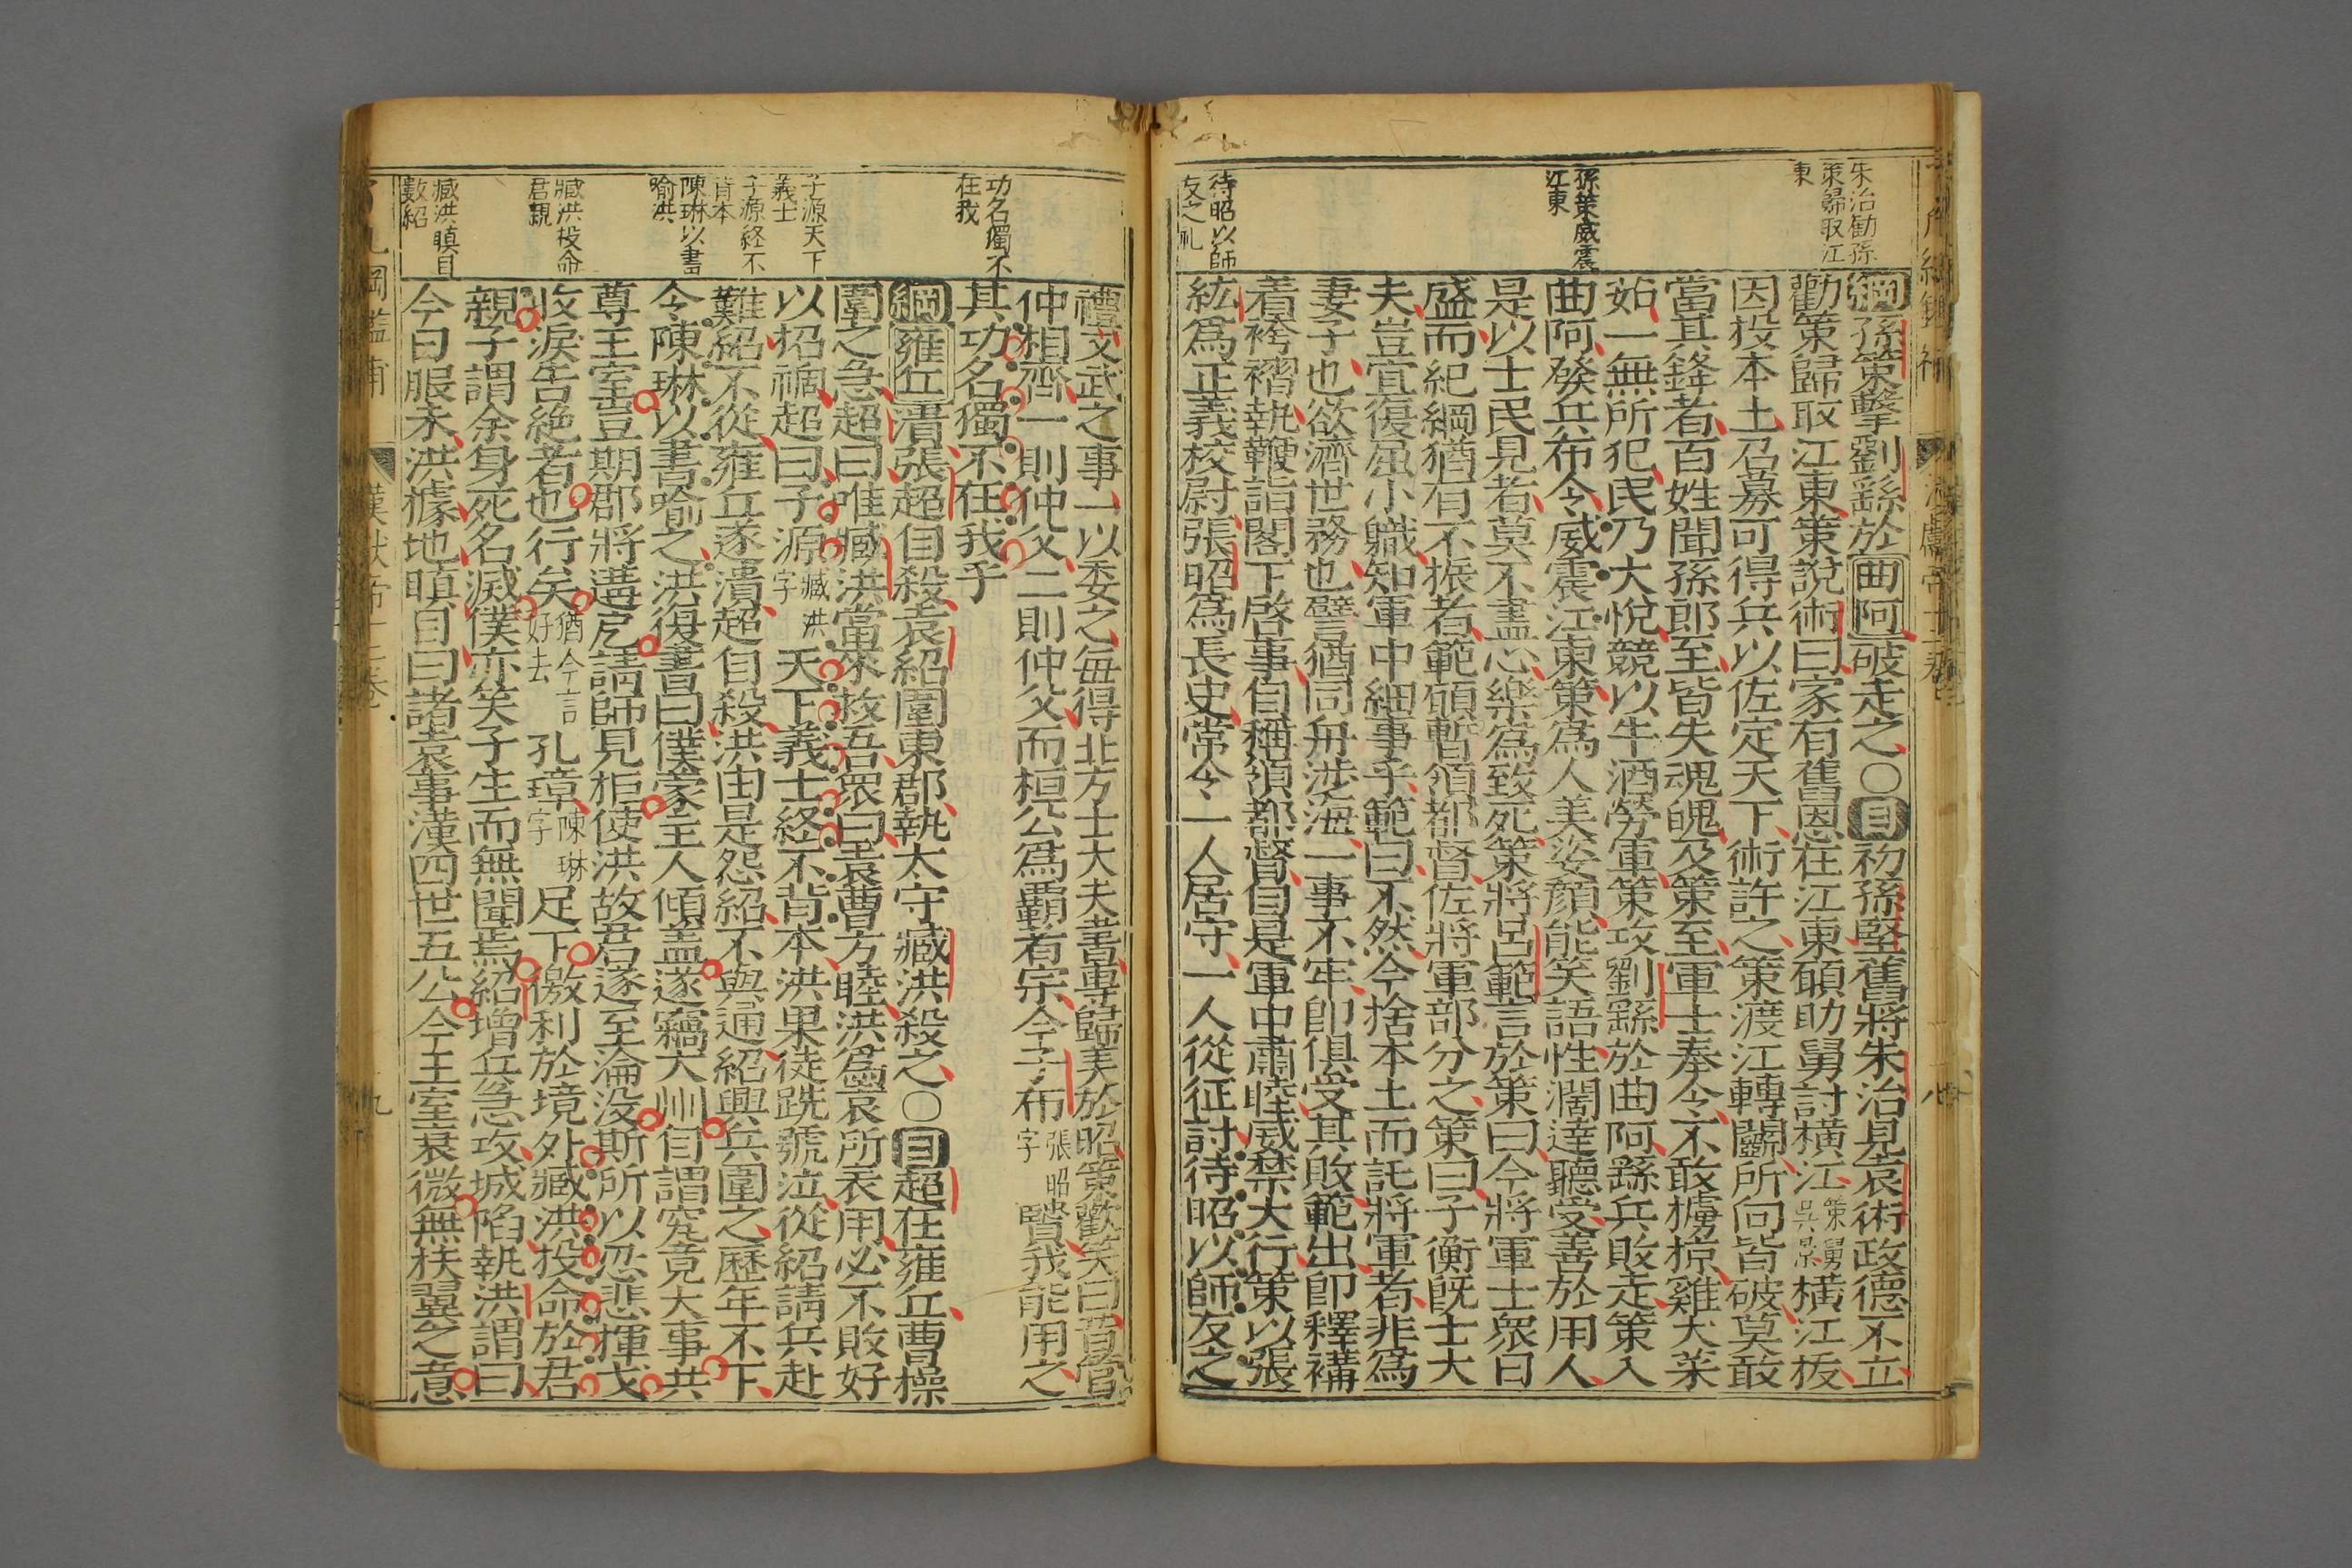 朱治勸孫
策歸取江
東
孫策威震
江東
待昭以師
友之礼
綱孫策擊劉繇於曲阿破走之〇目初孫堅舊將朱治見袁術政德不立
勸策歸取江東策說術曰家有舊恩在江東願助舅討橫江策舅吳景橫江拔
因投本土召募可得兵以佐定天下術許之策渡江轉鬭所向皆破莫敢
當其鋒者百姓聞孫郎至皆失魂魄及策至軍士奉令不敢擄掠雞犬菜
茹一無所犯民乃大悅競以牛酒勞軍策攻劉繇於曲阿繇兵敗走策入
曲阿發兵布令威震江東策為人美姿顏能笑語性濶達聽受善於用人
是以士民見者莫不盡心樂為致死策將呂範言於策曰今將軍士眾日
盛而紀綱猶有不振者範願暫領都督佐將軍部分之策曰子衡既士大
夫豈宜復屈小職知軍中細事乎範曰不然今捨本土而託將軍者非為
妻子也欲濟世務也譬猶同舟涉海一事不牢即俱受其敗範出即釋褠
着袴褶執鞭詣閣下啓事自稱領都督自是軍中肅睦威禁大行策以張
紘為正義校尉張昭為長史常令一人居守一人從征討待昭以師友之
功名獨不
在我
子源天下
義士
子源終不
背本
陳琳以書
喻洪
臧洪投命
君親
臧洪瞋目
數紹
禮文武之事一以委之每得北方士大夫書專歸美於昭策歡笑曰昔管
仲相齊一則仲父二則仲父而桓公為覇者宗今子布張昭字賢我能用之
其功名獨不在我乎
綱雍丘潰張超自殺袁紹圍東郡執太守臧洪殺之〇目超在雍丘曹操
圍之急超曰唯臧洪當來救吾眾曰袁曹方睦洪為袁所表用必不敗好
以招禍超曰子源臧洪字天下義士終不背本洪果徒跣號泣從紹請兵赴
難紹不從雍丘遂潰超自殺洪由是怨紹不與通紹興兵圍之歷年不下
令陳琳以書喻之洪復書曰僕蒙主人傾蓋遂竊大州自謂究竟大事共
尊王室豈期郡將遘戹請師見拒使洪故君遂至淪没斯所以忍悲揮戈
收淚告絶者也行矣猶今言好去孔璋陳琳字足下徼利於境外臧洪投命於君
親子謂余身死名滅僕亦笑子生而無聞焉紹增兵急攻城陷執洪謂曰
今日服未洪據地瞋目曰諸袁事漢四世五公今王室衰微無扶翼之意
漢獻帝十二卷
九